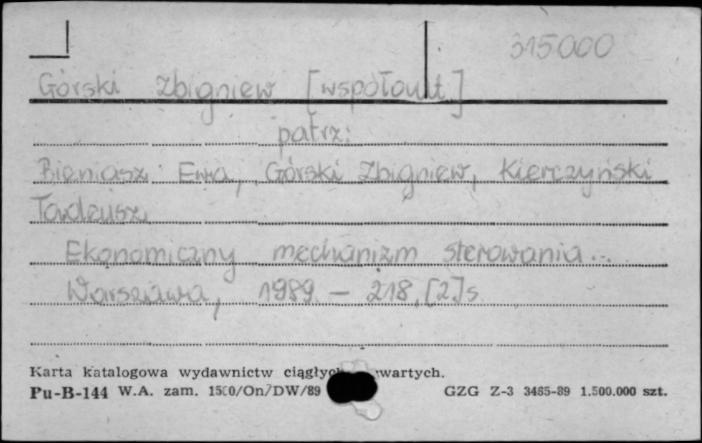 315000
Górski Zbigniew [współaut.]
patrz:
Bieniasz Ewa, Górski Zbigniew, Kierczyński
Tadeusz
Ekonomiczny mechanizm sterowania...
Warszawa, 1989. – 218, [2] s.
Karta katalogowa wydawnictw wartych.
Pu-B-144 W.A. zam. 1500/On/DW/89 GZG Z-3 3485-89 1.500.000 szt.